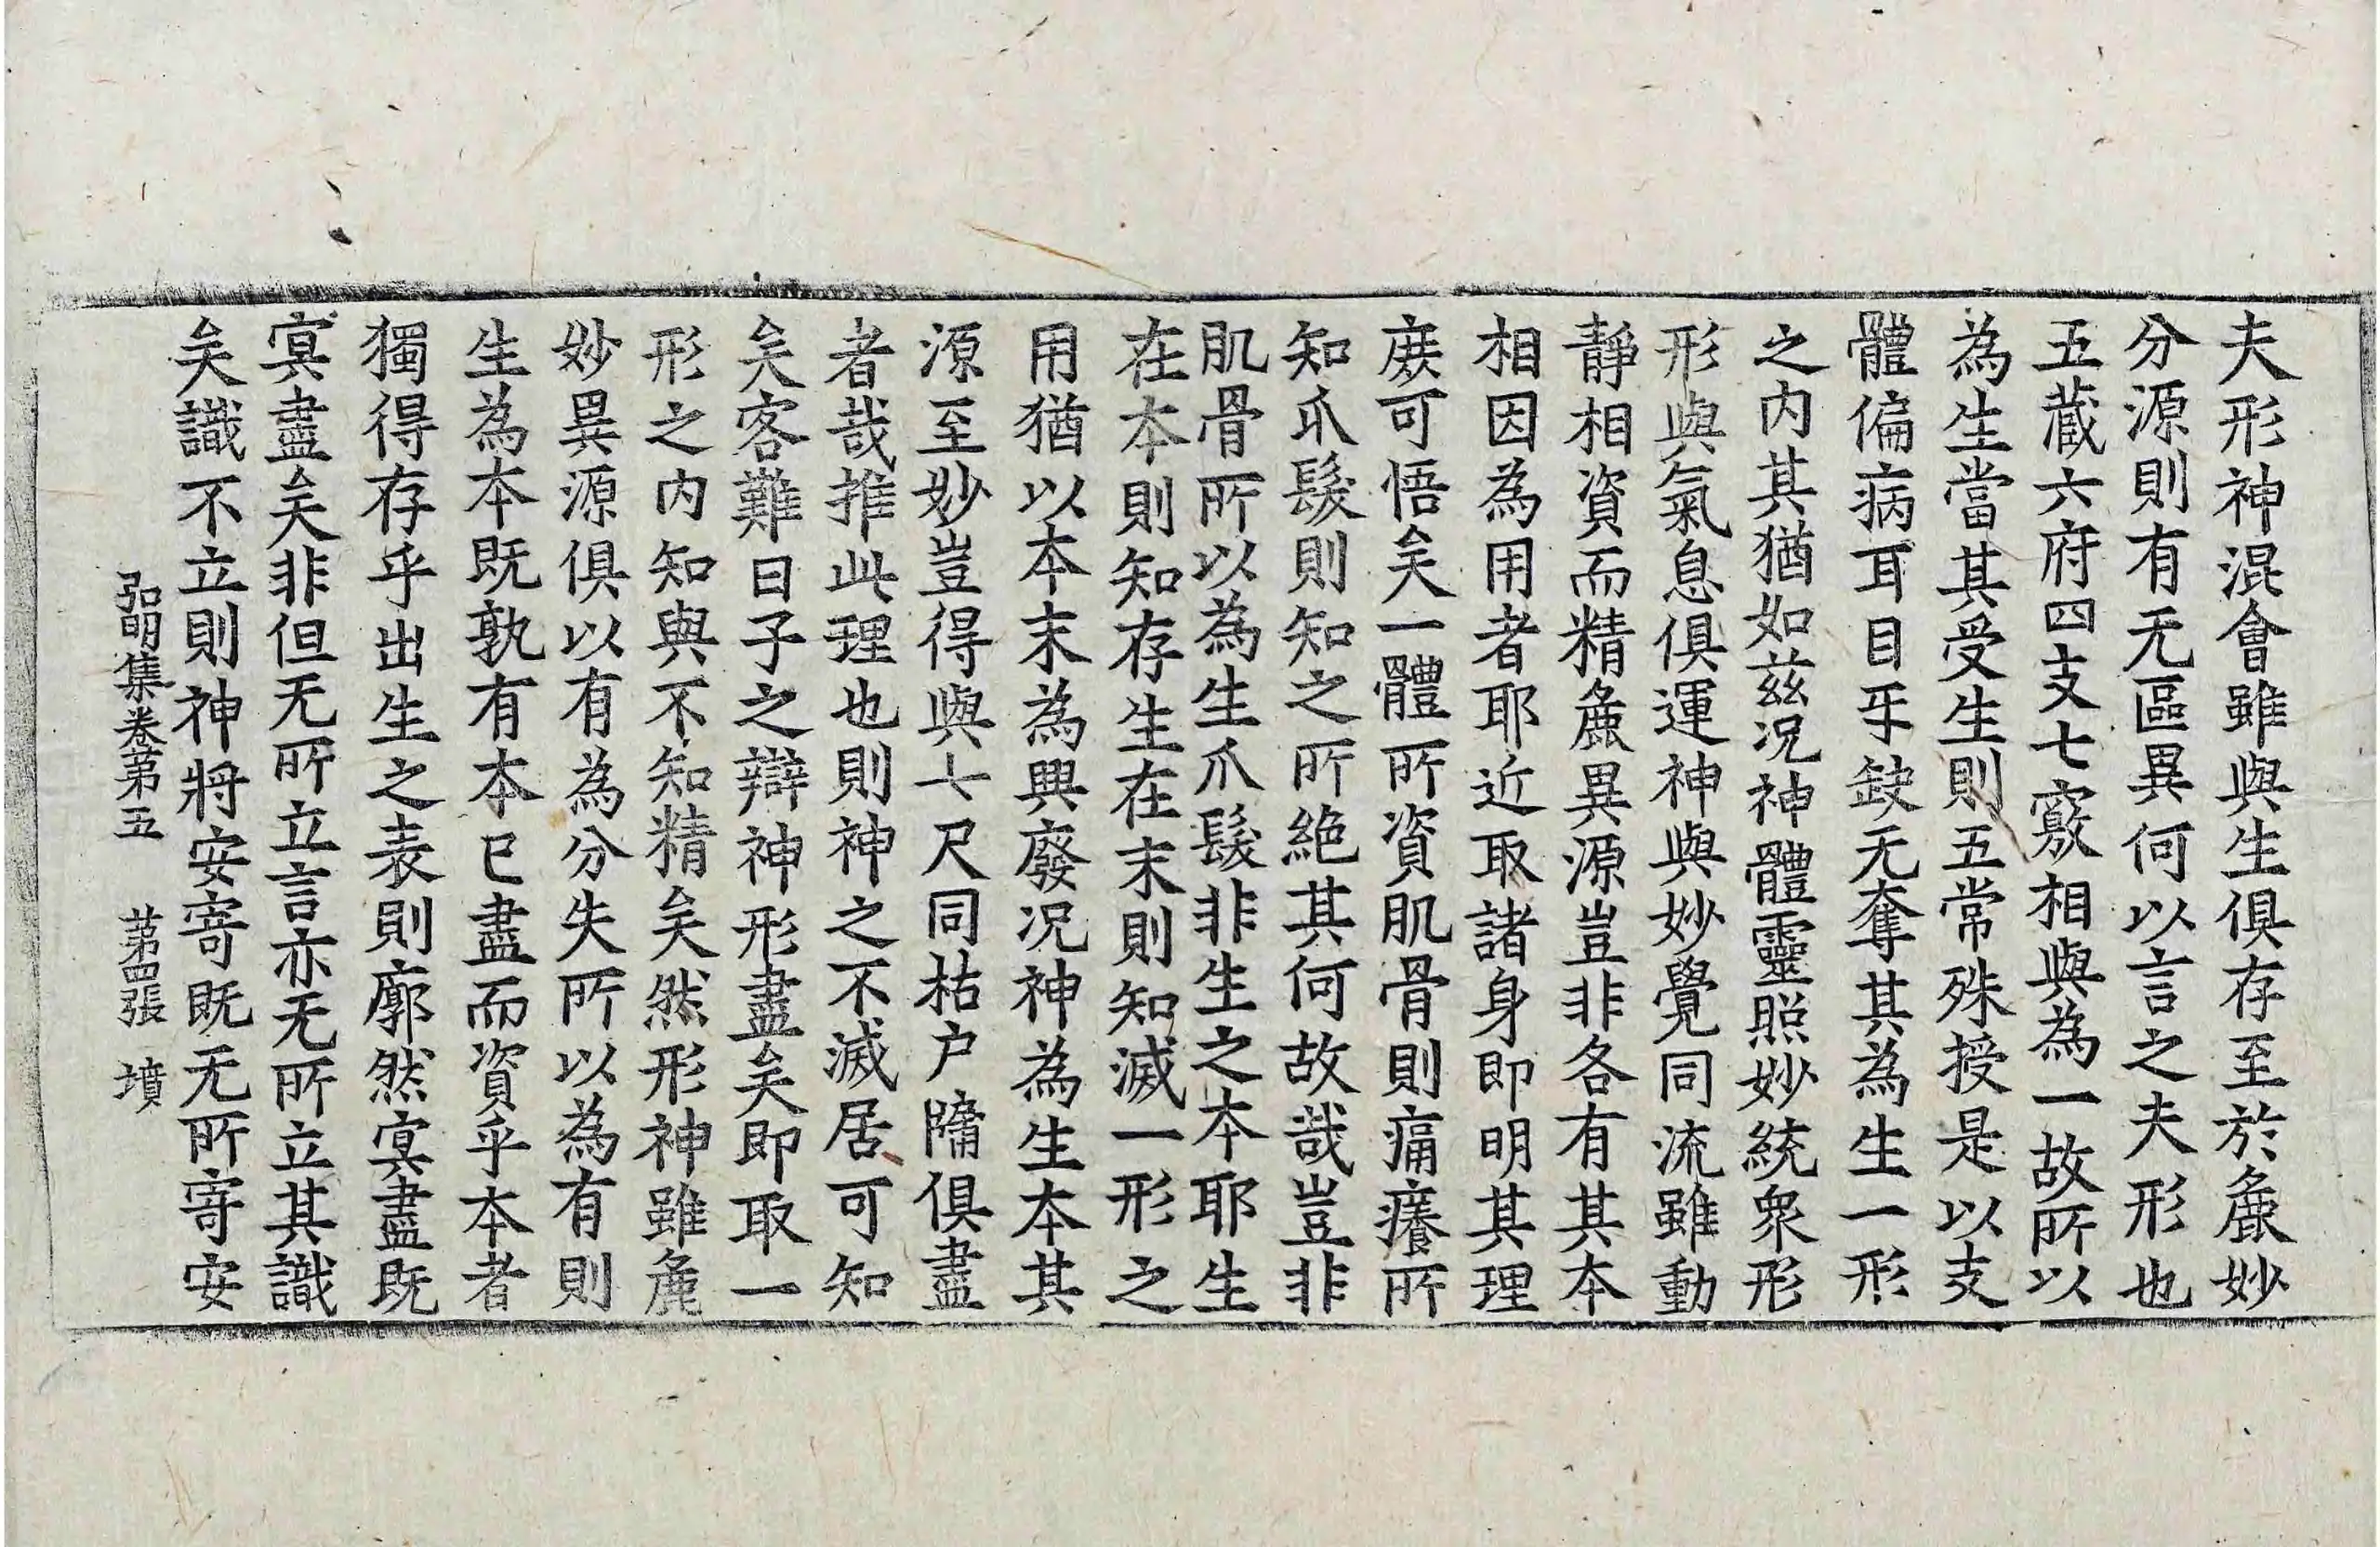 夫形神混會雖與生俱存至於麁妙
分源則有无區異何以言之夫形也
五藏六府四支七竅相與為一故所以
為生當其受生則五常殊授是以支
體偏病耳目牙缺无奪其為生一形
之内其猶如兹况神體靈照妙統衆形
形與氣息俱運神與妙覺同流雖動
静相資而精麁異源豈非各有其本
相因為用者耶近取諸身即明其理
庻可悟矣一體所資肌骨則痛癢所
知爪髮則知之所絶其何故哉豈非
肌骨所以為生爪髮非生之本耶生
在本則知存生在末則知滅一形之
用猶以本末為興廢况神為生本其
源至妙豈得與七尺同枯户牖俱盡
者哉推此理也則神之不滅居可知
矣客難曰子之辯神形盡矣即取一
形之内知與不知精矣然形神雖麁
妙異源俱以有為分失所以為有則
生為本既孰有本已盡而資乎本者
獨得存乎出生之表則廓然㝠盡既
㝠盡矣非但无所立言亦无所立其識
矣識不立則神將安寄既无所寄安
弘明集卷第五 第四張 墳